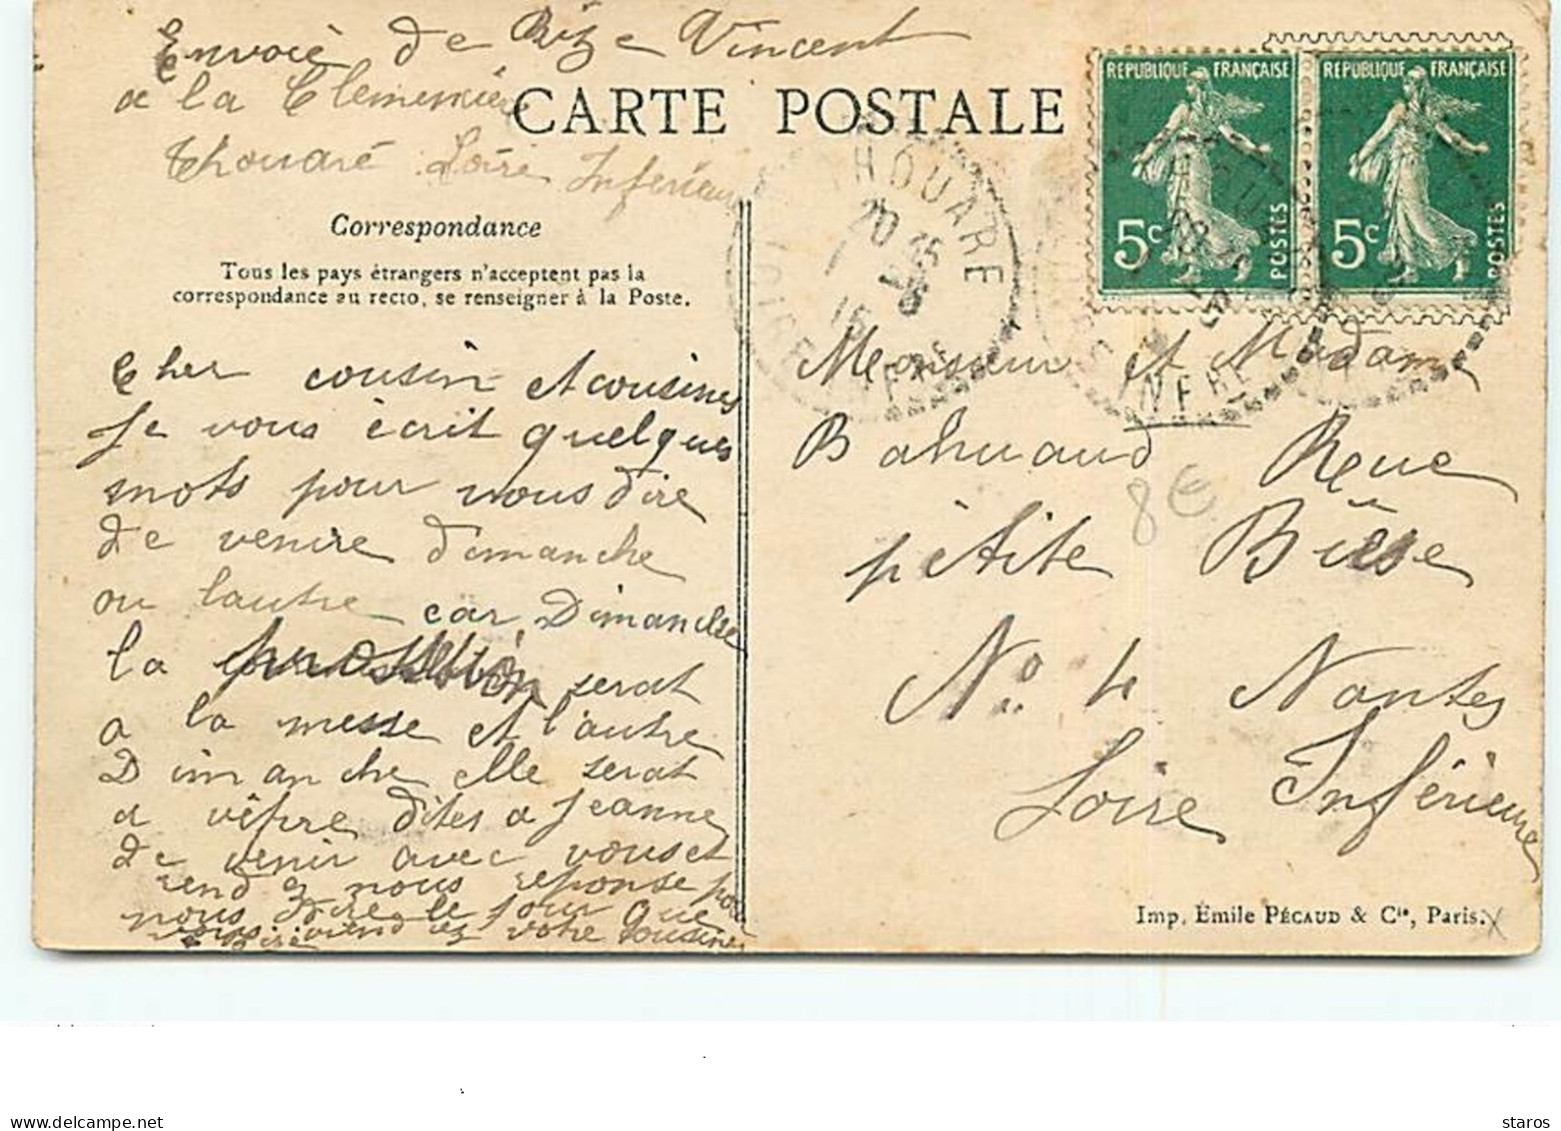 Envoié de Rize Vincent
a la Clemencière
CARTE POSTALE
Thouaré Loire Inferieur
RÉPUBLIQUE FRANÇAISE
5c POSTES
RÉPUBLIQUE FRANÇAISE
5c POSTES
THOUARE
20 35
15
LOIRE INFRE
Correspondance
Tous les pays étrangers n'acceptent pas la
correspondance au recto, se renseigner à la Poste.
Cher cousin et cousines
Je vous écrit quelques
mots pour vous dire
de venire dimanche
ou lautre car Dimanche
la serat
a la messe et l'autre
Dimanche elle serat
a vêpre dites a Jeanne
de venir avec vous et
rendez nous reponse pour
nous dire le jour que
vous viendrez votre cousine
Monsieur et Madame
Bahuaud Reue
pétite Biése
No 4 Nantes
Loire Inférieure
8€
Imp. Emile PÉCAUD & Cie, Paris.
delcampe.net
staros